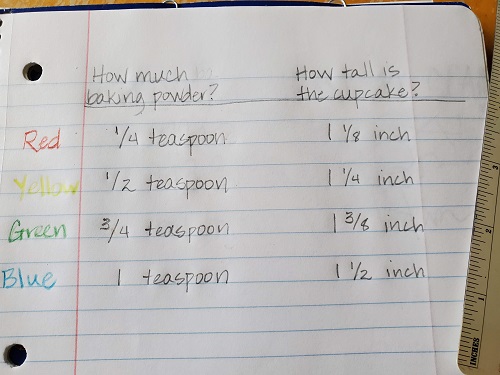 How much How tall is
baking powder? the cupcake?
Red 1/4 teaspoon 1 1/8 inch
Yellow 1/2 teaspoon 1 1/4 inch
Green 3/4 teaspoon 1 3/8 inch
Blue 1 teaspoon 1 1/2 inch
3
2
1
INCHES